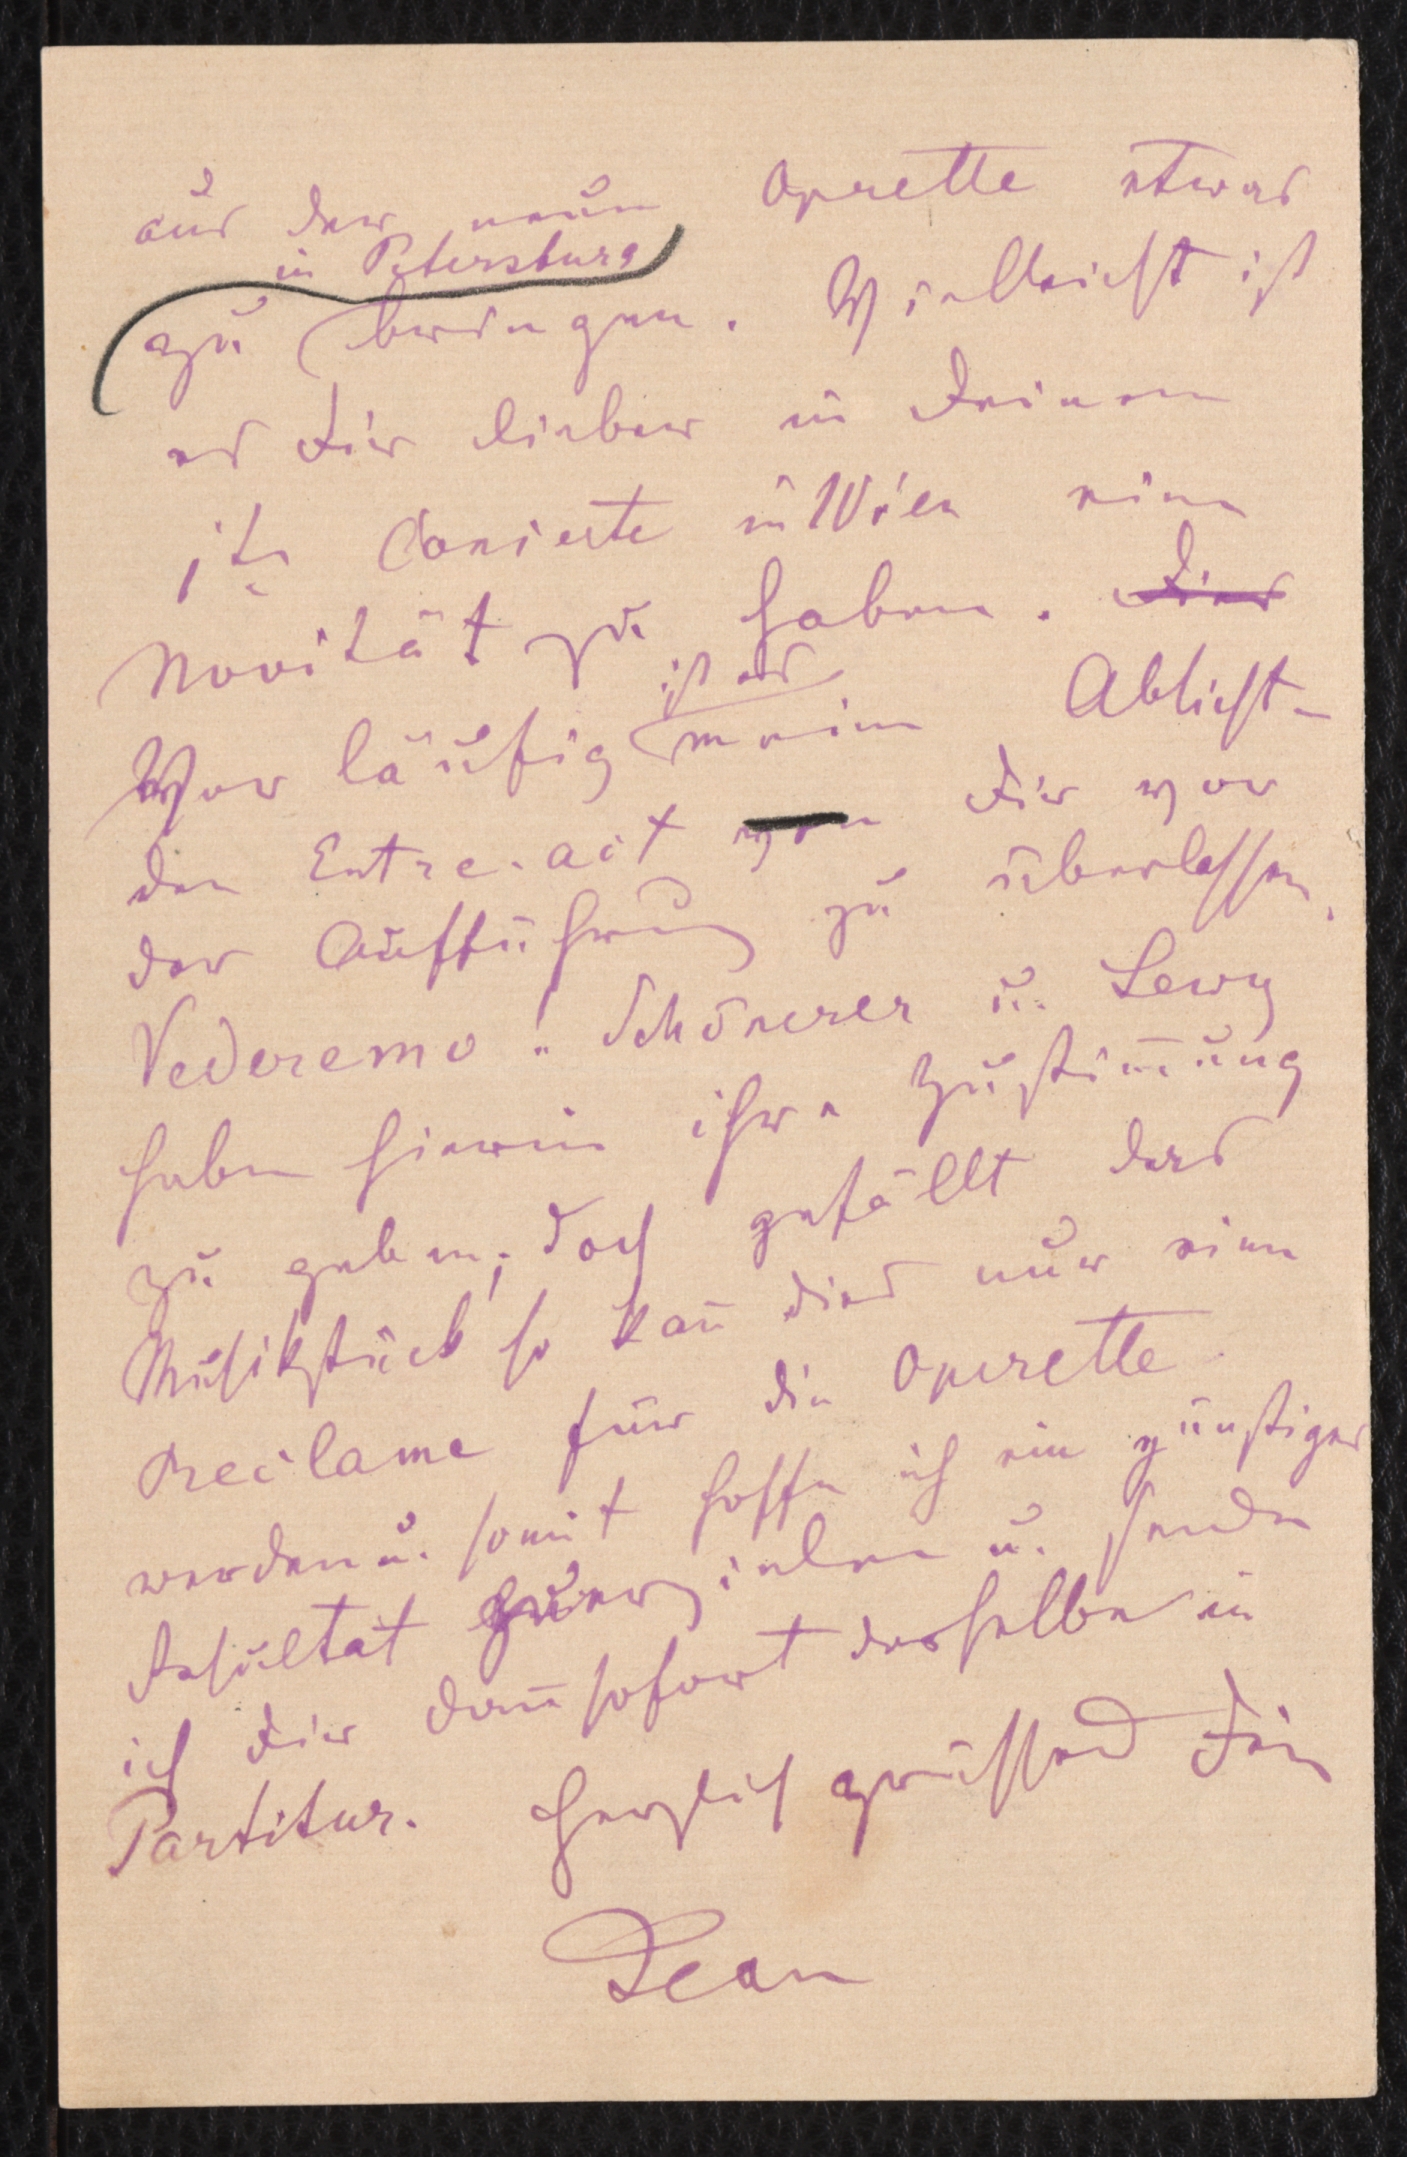 aus der neuen Operette etwas
in Petersburg
zu bringen. Vielleicht ist
es Dir lieber in Deinem
Concerte in Wien eine
Novität zu haben. Dies
ist es
Vorläufig meine Absicht –
den Entre-act von Dir vor
der Aufführung zu überlassen.
Vederemo! Schönerer u. Lewy
haben hierin ihre Zustim̄ung
zu geben; doch gefällt das
Musikstück so kan̄ dies nur eine
Reclame für die Operette
werden u. somit hoffe ich ein günstiges
Resultat erzielen u. sende
ich Dir dan̄ sofort dasselbe in
Partitur. Herzlich grüssend Dein
Jean